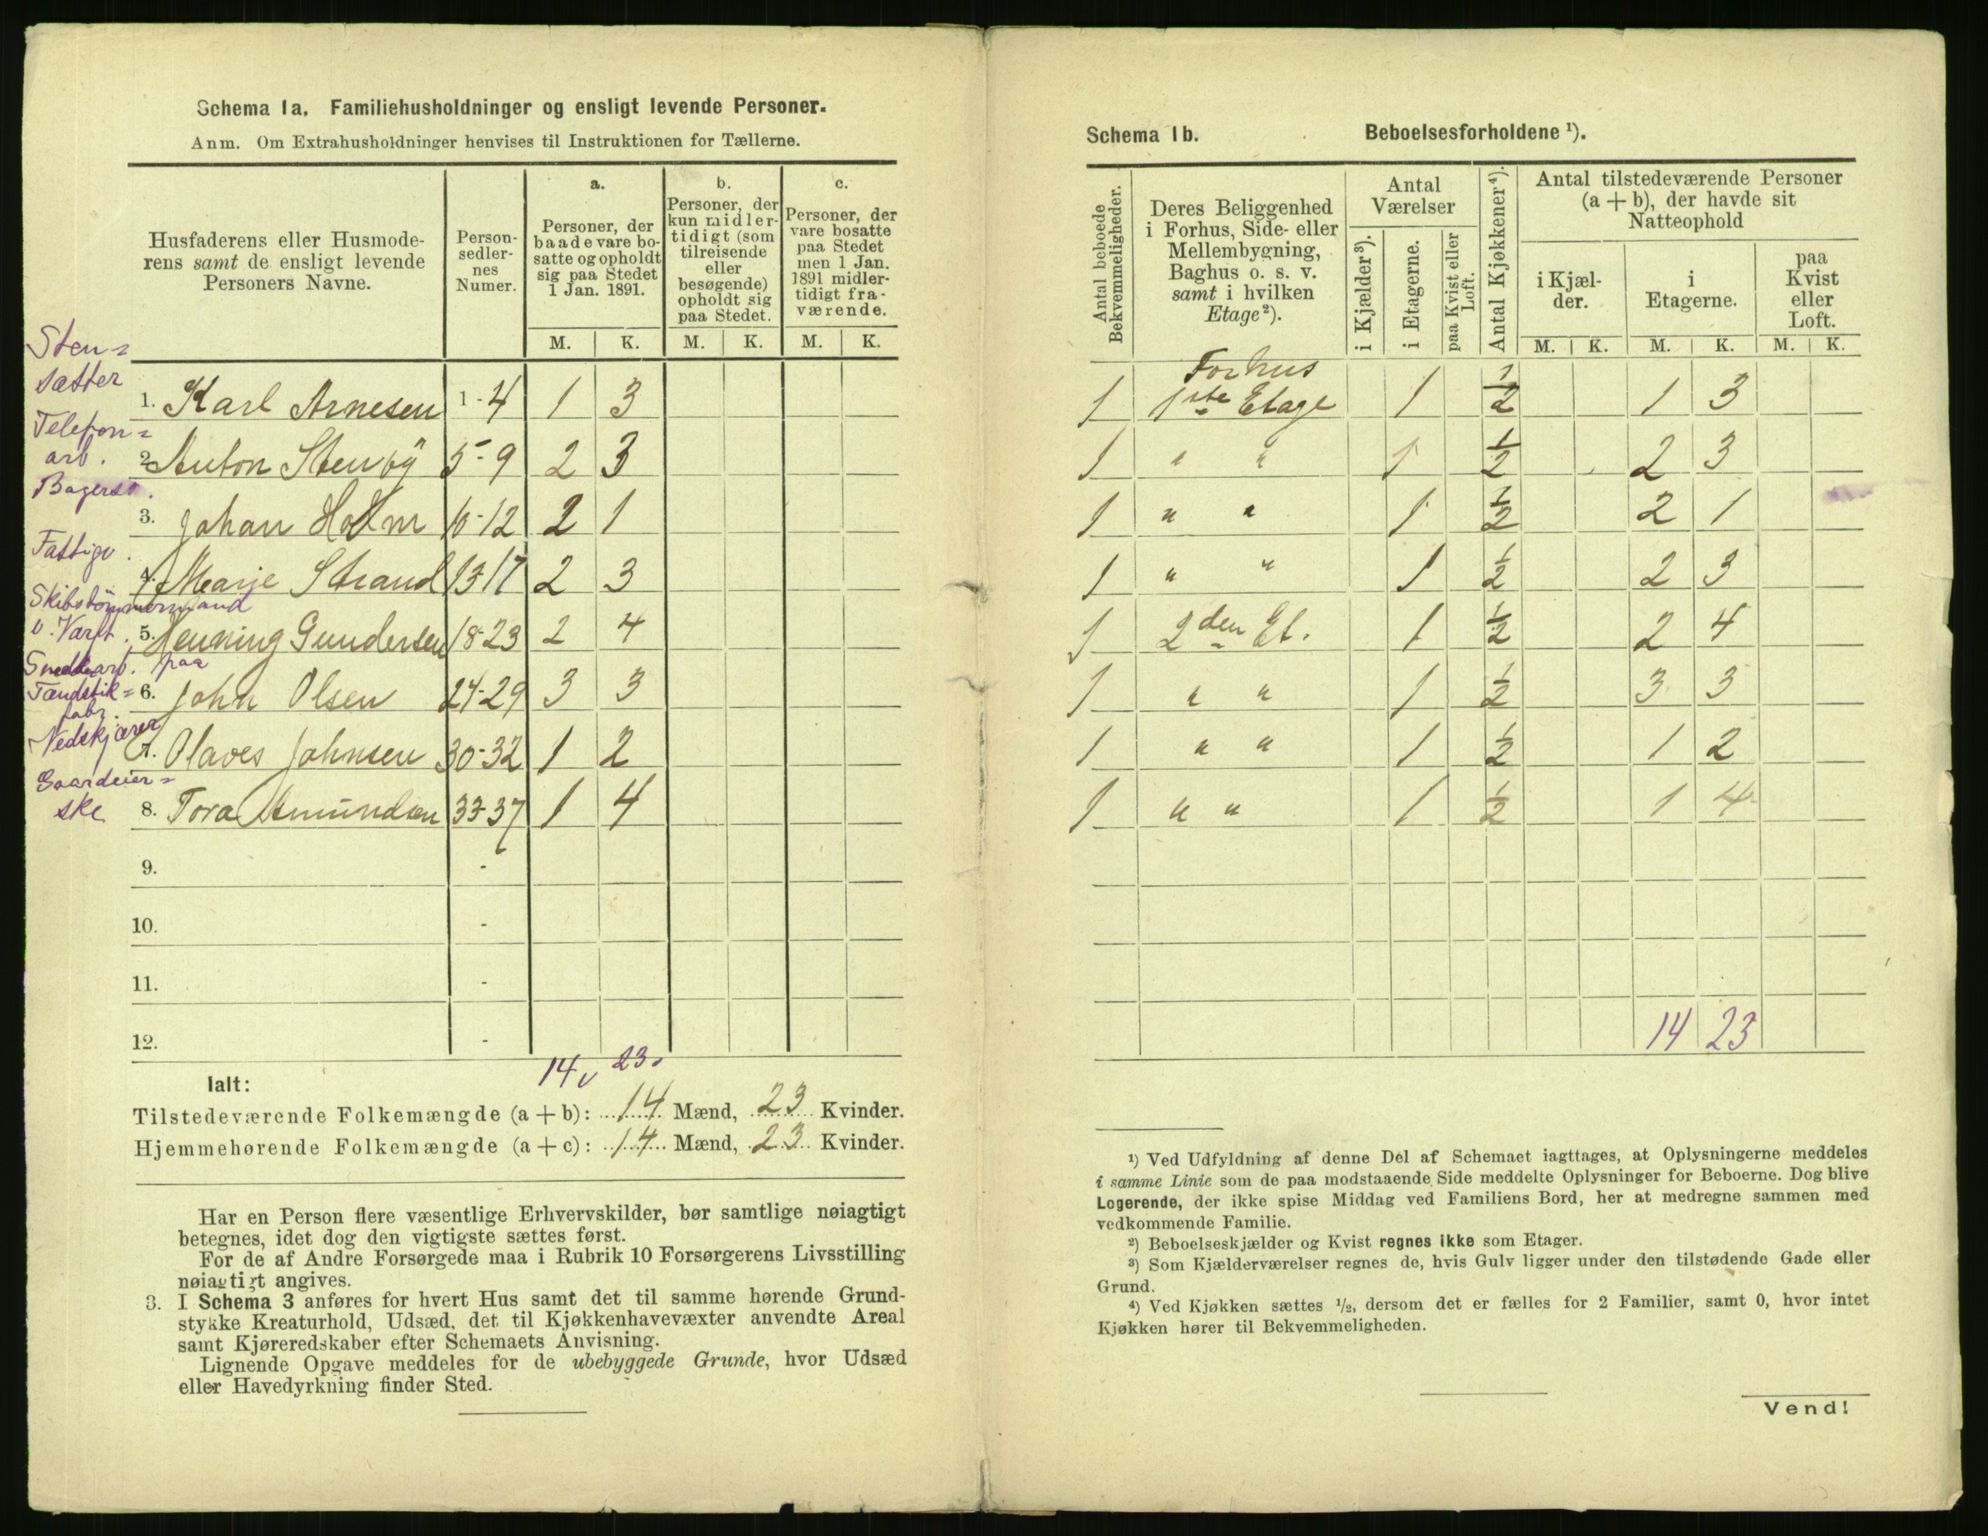 Schema 1a. Familiehusholdninger og ensligt levende Personer.
Anm. Om Extrahusholdninger henvises til Instruktionen for Tællerne.
Husfaderens eller Husmode-
rens samt de ensligt levende
Personers Navne.
Person-
sedler-
nes
Numer.
a.
Personer, der
baade vare bo-
satte og opholdt
sig paa Stedet
1 Jan. 1891.
b.
Personer, der
kun midler-
tidigt (som
tilreisende
eller
besøgende)
opholdt sig
paa Stedet.
c.
Personer, der
vare bosatte
paa Stedet
men 1 Jan.
1891 midler-
tidigt fra-
værende.
M. K. M. K. M. K.
Sten=
sætter
1. Karl Arnesen 1-4 1 3
Telefon=
arb.
2. Anton Stenby 5-9 2 3
Bagersv.
3. Johan Holm 10-12 2 1
Fattigv.
4. Marie Strand 13-17 2 3
Skibstømmermand
v. Værft.
5. Henning Gundersen 18-23 2 4
Snedkarb. paa
Tændstik=
fabr.
6. John Olsen 24-29 3 3
Vedskjærer
7. Olaves Johnsen 30-32 1 2
Gaardeier=
ske
8. Tora Amundsen 33-37 1 4
9. -
10. -
11. -
12. -
14 23
Ialt:
Tilstedeværende Folkemængde (a + b): 14 Mænd, 23 Kvinder.
Hjemmehørende Folkemængde (a + c): 14 Mænd, 23 Kvinder.
Har en Person flere væsentlige Erhvervskilder, bør samtlige nøiagtigt
betegnes, idet dog den vigtigste sættes først.
For de af Andre Forsørgede maa i Rubrik 10 Forsørgerens Livsstilling
nøiagtigt angives.
3. I Schema 3 anføres for hvert Hus samt det til samme hørende Grund-
stykke Kreaturhold, Udsæd, det til Kjøkkenhavevæxter anvendte Areal
samt Kjøreredskaber efter Schemaets Anvisning.
Lignende Opgave meddeles for de ubebyggede Grunde, hvor Udsæd
eller Havedyrkning finder Sted.
Schema 1b. Beboelsesforholdene ¹).
Antal beboede
Bekvemmeligheder.
Deres Beliggenhed
i Forhus, Side- eller
Mellembygning,
Baghus o. s. v.
samt i hvilken
Etage ²).
Antal
Værelser
i Kjælder ³).
i Etagerne.
paa Kvist eller
Loft.
Antal Kjøkkener ⁴).
Antal tilstedeværende Personer
(a + b), der havde sit
Natteophold
i Kjæl-
der.
i
Etagerne.
paa
Kvist
eller
Loft.
M. K. M. K. M. K.
Forhus
1 1ste Etage 1 1/2 1 3
1 " " 1 1/2 2 3
1 " " 1 1/2 2 1
1 " " 1 1/2 2 3
1 2den Et. 1 1/2 2 4
1 " " 1 1/2 3 3
1 " " 1 1/2 1 2
1 " " 1 1/2 1 4
14 23
¹) Ved Udfyldning af denne Del af Schemaet iagttages, at Oplysningerne meddeles
i samme Linie som de paa modstaaende Side meddelte Oplysninger for Beboerne. Dog blive
Logerende, der ikke spise Middag ved Familiens Bord, her at medregne sammen med
vedkommende Familie.
²) Beboelseskjælder og Kvist regnes ikke som Etager.
³) Som Kjælderværelser regnes de, hvis Gulv ligger under den tilstødende Gade eller
Grund.
⁴) Ved Kjøkken sættes ¹/₂, dersom det er fælles for 2 Familier, samt 0, hvor intet
Kjøkken hører til Bekvemmeligheden.
Vend!